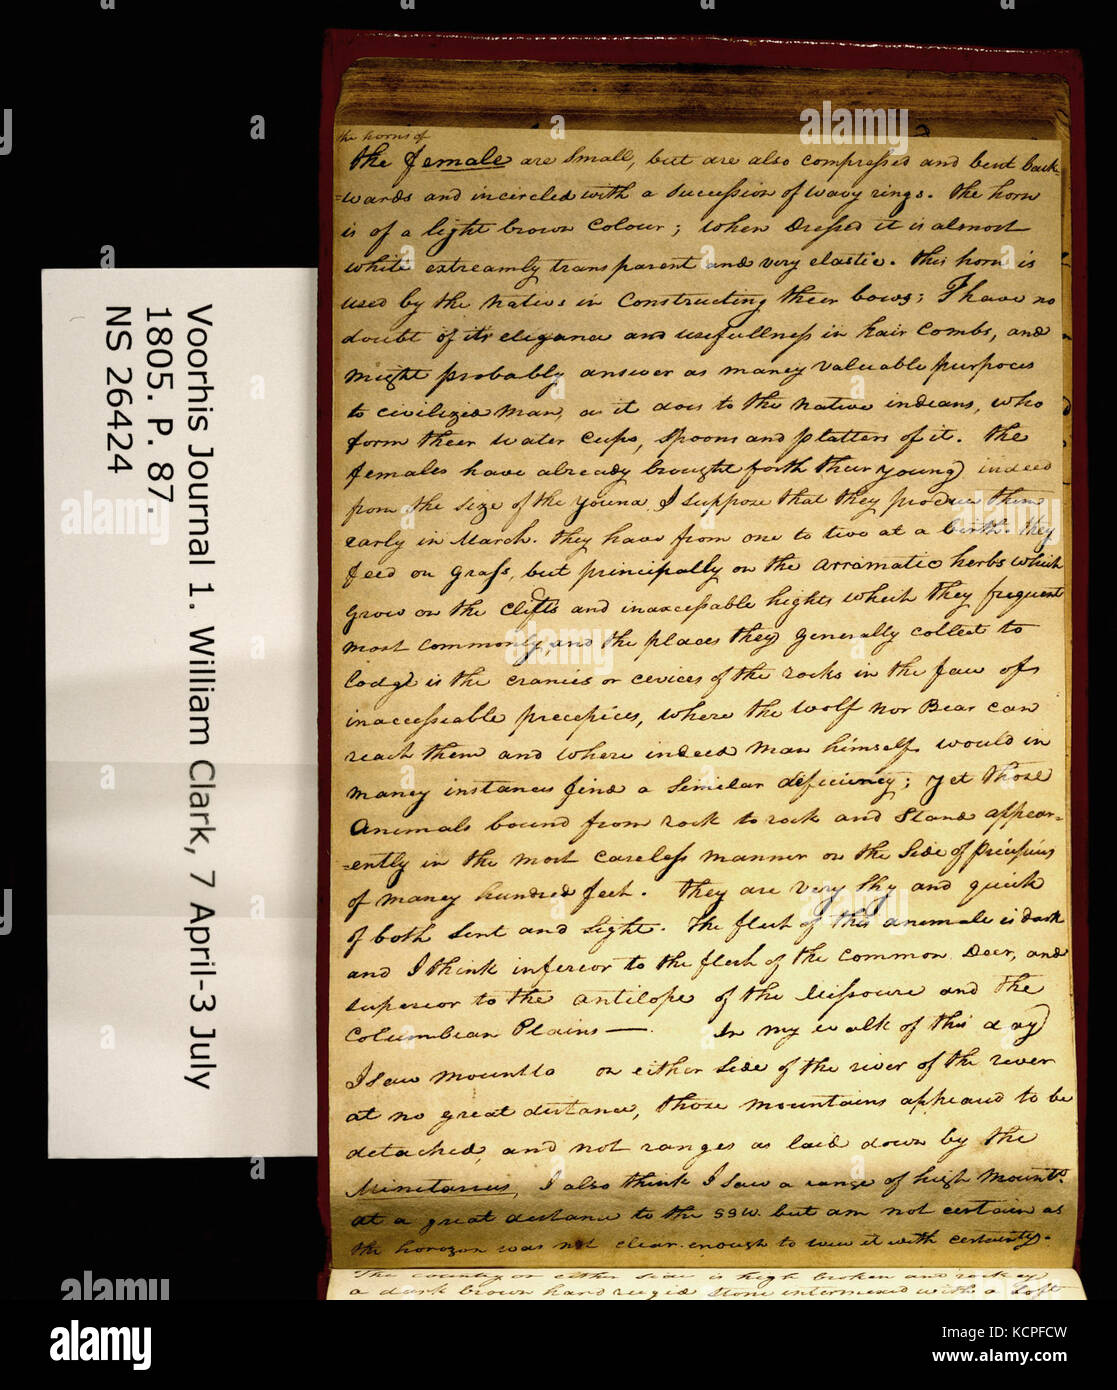 Voorhis Journal 1. William Clark, 7 April-3 July
1805. P. 87.
NS 26424
the horns of
the female are Small, but are also compressed and bent back-
=wards and incircled with a succession of wavy rings. the horn
is of a light brown Colour; when Dressed it is almost
white extreamly transparent and very elastic. this horn is
used by the natives in Constructing their bows; I have no
doubt of its elegance and usefullness in hair Combs, and
might probably answer as maney valuable purposes
to civilized man, as it does to the native indeans, who
form their water Cups, Spoons and platters of it. the
females have already brought forth their young indeed
from the size of the young I suppose that they produce them
early in March. they have from one to two at a birth. they
feed on grass, but principally on the arramatic herbs which
grow on the clifts and inaccessable hights which they frequent
most commonly, and the places they generally collect to
lodge is the cranies or cevices of the rocks in the face of
inaccessable precepices, where the wolf nor Bear can
reach them and where indeed man himself would in
maney instances find a Similar deficiency; yet those
Animals bound from rock to rock and Stand appear-
=ently in the most Careless manner on the Side of precipices
of maney hundred feet. they are very Shy and quick
of both Sent and Sight. The flesh of this anemale is dark
and I think inferior to the flesh of the common Deer, and
superior to the antilope of the Missouri and the
Columbean Plains —. In my walk of this day
I saw mounts on either side of the river of the river
at no great distance, those mountains appeared to be
detached, and not ranges as laid down by the
Minetarees, I also think I saw a range of high Mounts.
at a great distance to the SSW. but am not certain as
the horozon was not clear enough to view it with certainty.
The country on either side is high broken and rockey
a dark brown hard rugid stone intermixed with a Soft
alamy
a
alamy
Image ID: KCPFCW
www.alamy.com